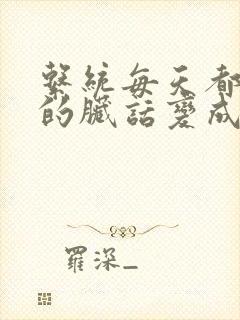 繫統每天都
的臟話變成
羅深_